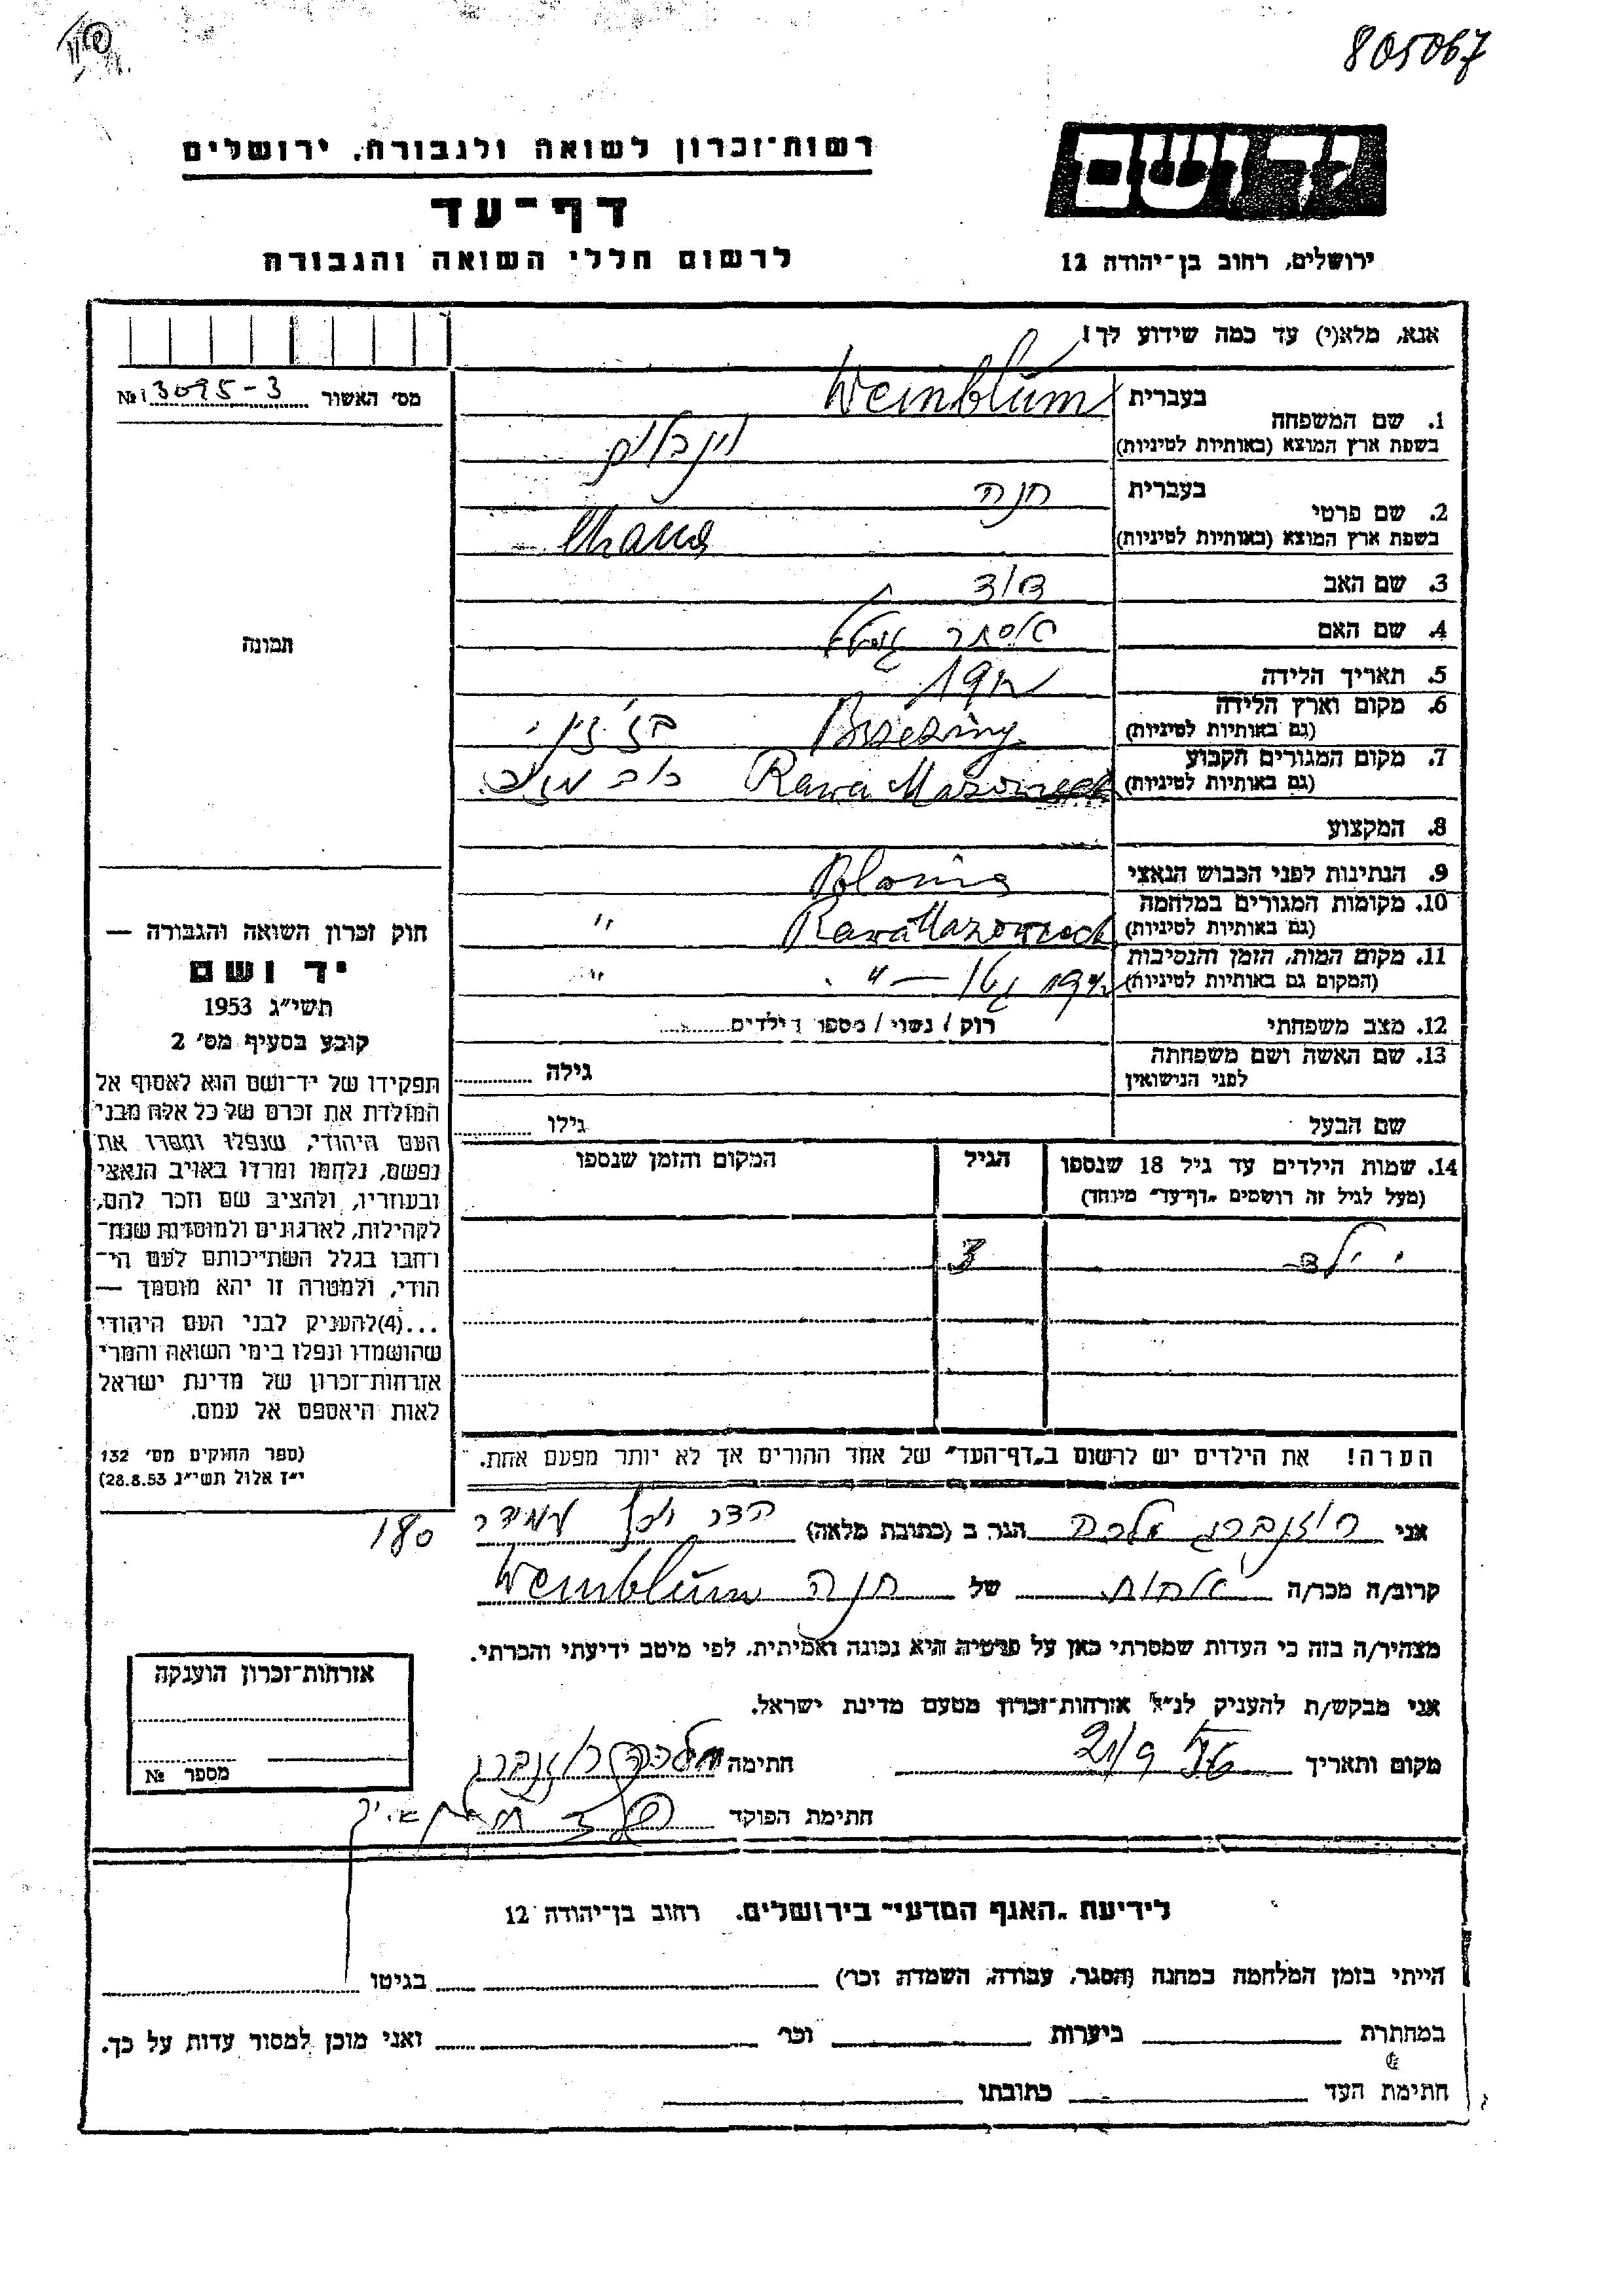 805067
יד ושם
רשות־זכרון לשואה ולגבורה, ירושלים
דף־עד
לרשום חללי השואה והגבורה
ירושלים, רחוב בן־יהודה 12
אנא, מלא(י) עד כמה שידוע לך!
מס׳ האשור 3095-3 №
1. שם המשפחה
בעברית Weinblum
בשפת ארץ המוצא (באותיות לטיניות) וינבלום
2. שם פרטי
בעברית חנה
בשפת ארץ המוצא (באותיות לטיניות) Chana
3. שם האב
4. שם האם אסתר
5. תאריך הלידה
6. מקום וארץ הלידה
(גם באותיות לטיניות) Brzeziny
7. מקום המגורים הקבוע
(גם באותיות לטיניות) Rawa
8. המקצוע
9. הנתינות לפני הכבוש הנאצי Polonia
10. מקומות המגורים במלחמה
(גם באותיות לטיניות) Rawa ״
11. מקום המות, הזמן והנסיבות
(המקום גם באותיות לטיניות) ״ — ״
12. מצב משפחתי רוק / נשוי / מספר הילדים
13. שם האשה ושם משפחתה
לפני הנישואין גילה
שם הבעל גילו
14. שמות הילדים עד גיל 18 שנספו
(מעל לגיל זה רושמים „דף־עד״ מיוחד)
הגיל
המקום והזמן שנספו
ילד 3
הערה! את הילדים יש לרשום ב„דף־העד״ של אחד ההורים אך לא יותר מפעם אחת.
תמונה
חוק זכרון השואה והגבורה —
יד ושם
תשי״ג 1953
קובע בסעיף מס׳ 2
תפקידו של יד־ושם הוא לאסוף אל
המולדת את זכרם של כל אלה מבני
העם היהודי, שנפלו ומסרו את
נפשם, נלחמו ומרדו באויב הנאצי
ובעוזריו, ולהציב שם וזכר להם,
לקהילות, לארגונים ולמוסדות שנח־
רחבו בגלל השתייכותם לעם הי־
הודי, ולמטרה זו יהא מוסמך —
...(4)להעניק לבני העם היהודי
שהושמדו ונפלו בימי השואה והמרי
אזרחות־זכרון של מדינת ישראל
לאות היאספם אל עמם.
(ספר החוקים מס׳ 132
י״ז אלול תשי״ג 28.8.53)
אני רוזנברג מלכה הגר ב (כתובת מלאה) 180
קרוב/ה מכר/ה אחות של חנה Weinblum
מצהיר/ה בזה כי העדות שמסרתי כאן על פרטיה היא נכונה ואמיתית, לפי מיטב ידיעתי והכרתי.
אני מבקש/ת להעניק לנ״ל אזרחות־זכרון מטעם מדינת ישראל.
מקום ותאריך 21/9 חתימה מלכה רוזנברג
חתימת הפוקד
אזרחות־זכרון הוענקה
מספר №
לידיעת „האגף המדעי״ בירושלים, רחוב בן־יהודה 12
הייתי בזמן המלחמה במחנה (הסגר, עבודה, השמדה וכר׳) בגיטו
במחתרת ביערות וכר׳ ואני מוכן למסור עדות על כך.
חתימת העד כתובתו